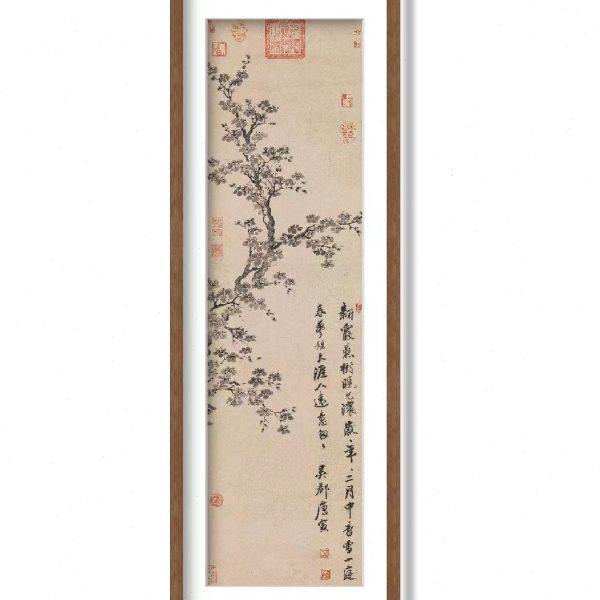 新霞蒸樹曉光濃歲〻年〻二月中香雪一庭
春夢短天涯人遠意匆〻 吳郡唐寅